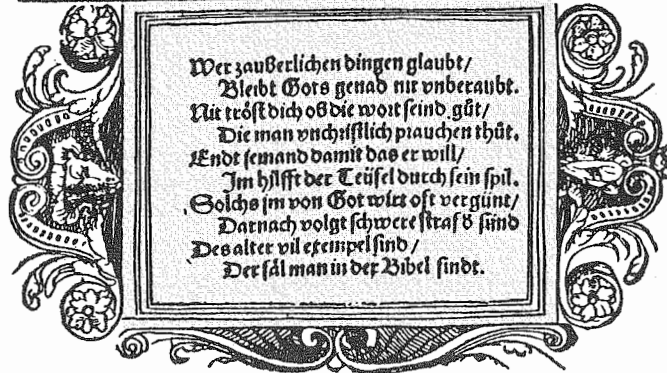 Wer zaußerlichen dingen glaubt/
Bleibt Gots genad nit vnberaubt.
Nit tröst dich ob die wort seind gůt/
Die man vnchristlich prauchen thůt.
Endt jemand damit das er will/
Im hilfft der Teüfel durch sein spil.
Solchs jm von Got wirt oft vergunt/
Darnach volgt schwere straf d sünd
Des alter vil exempel sind/
Der fäl man in der Bibel findt.